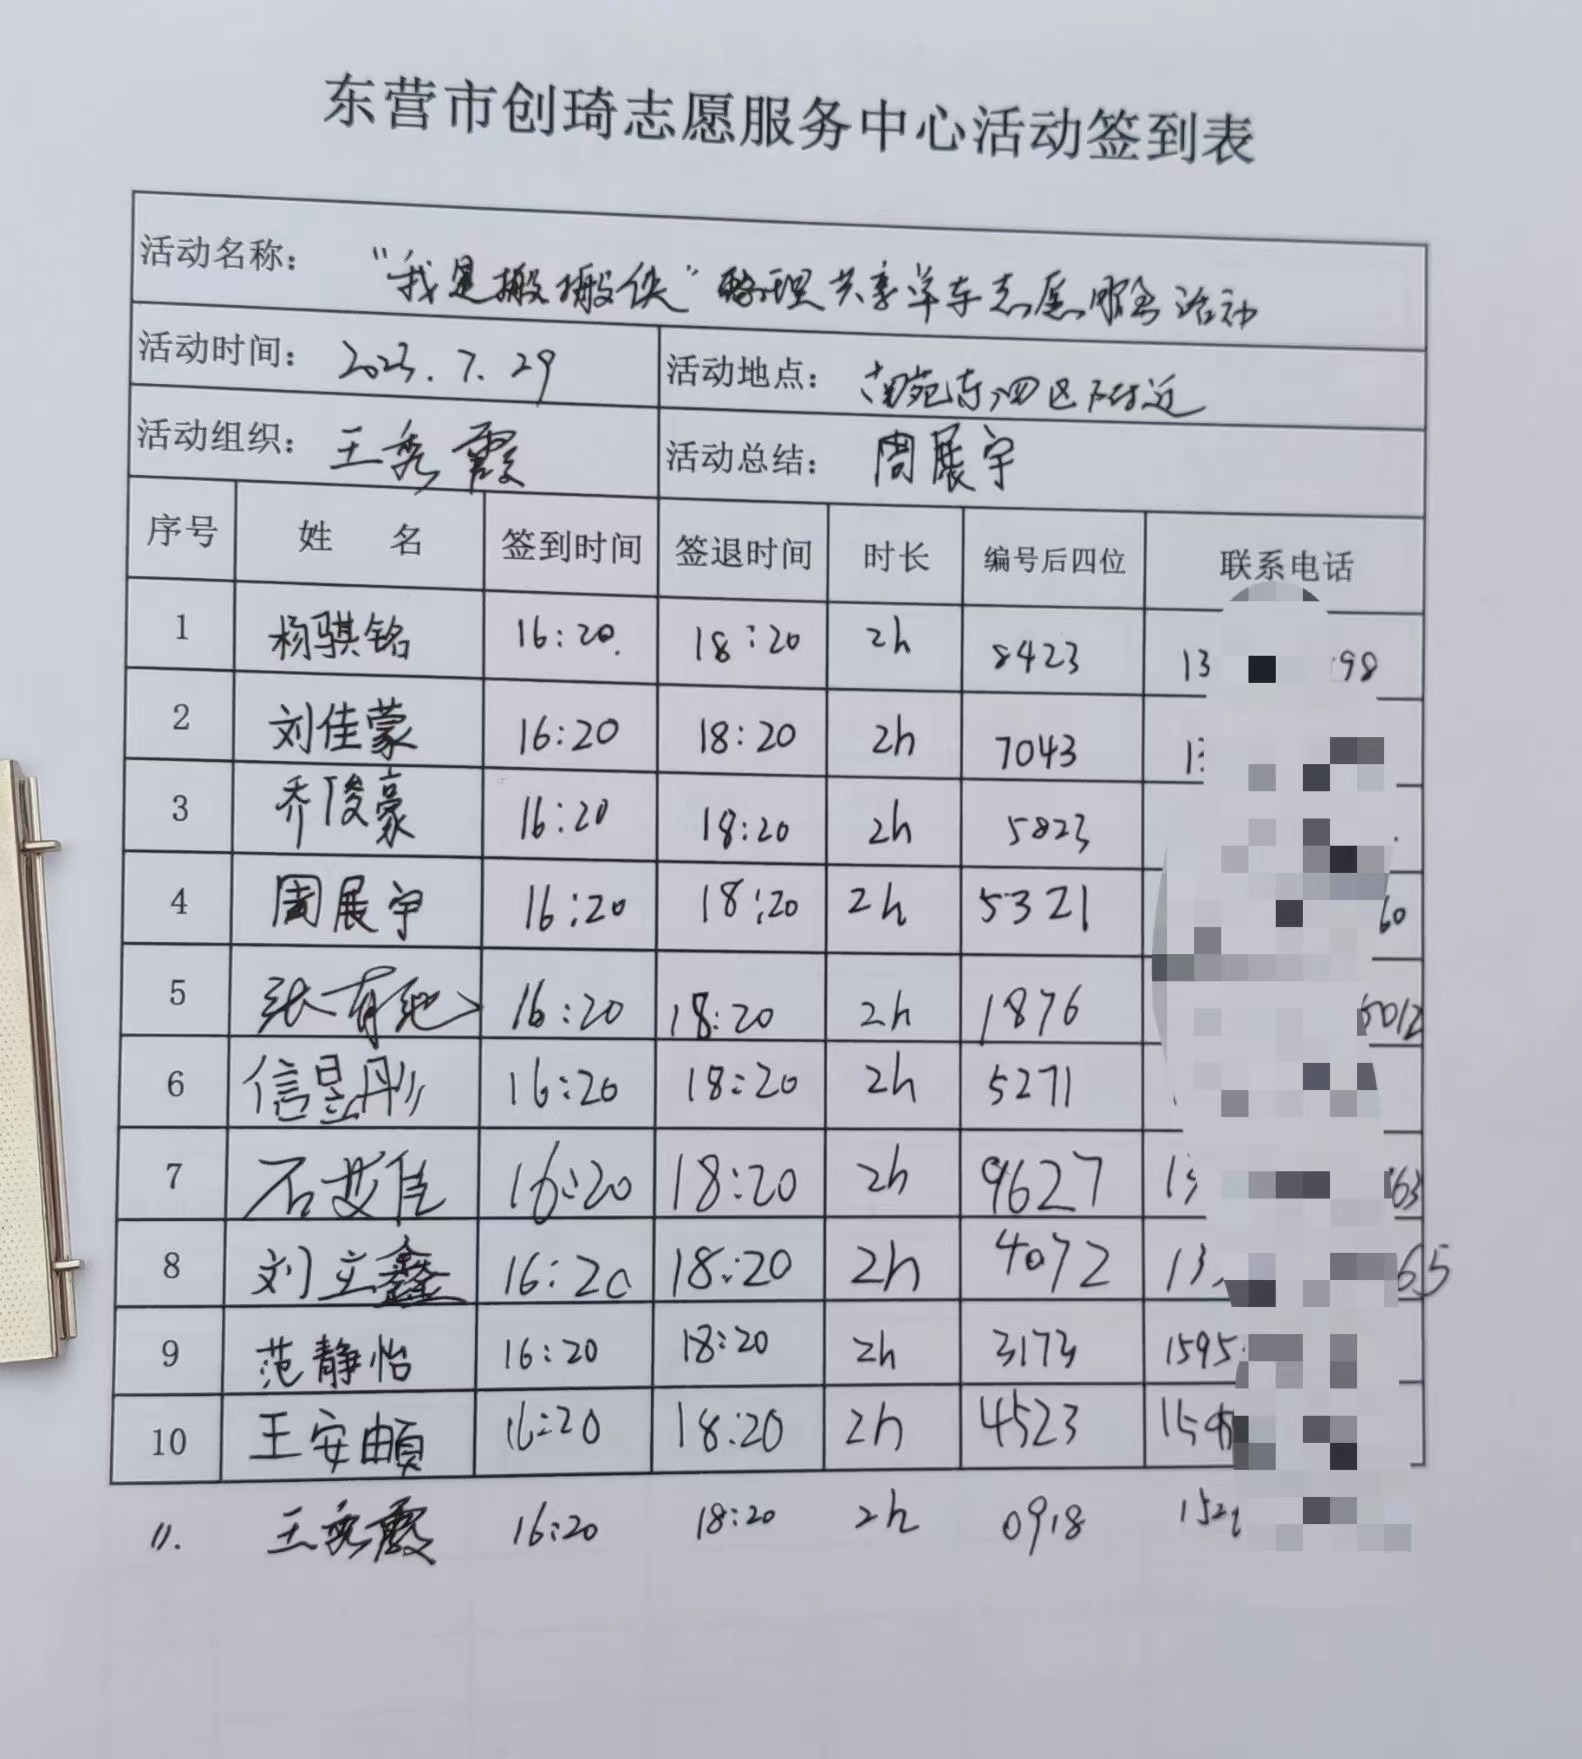 东营市创琦志愿服务中心活动签到表
活动名称： “我是搬搬侠”整理共享单车志愿服务活动
活动时间： 2023.7.29 活动地点： 南苑东四区附近
活动组织： 王秀霞 活动总结： 周展宇
序号 姓 名 签到时间 签退时间 时长 编号后四位 联系电话
1 杨骐铭 16:20. 18:20 2h 8423 13 98
2 刘佳蒙 16:20 18:20 2h 7043
3 乔俊豪 16:20 18:20 2h 5823
4 周展宇 16:20 18:20 2h 5321 60
5 16:20 18:20 2h 1876 012
6 信昱彤 16:20 18:20 2h 5271
7 石艾佳 16:20 18:20 2h 9627 13 63
8 刘立鑫 16:20 18:20 2h 4072 13 65
9 范静怡 16:20 18:20 2h 3173 1595
10 王安 16:20 18:20 2h 4523 159
11. 王秀霞 16:20 18:20 2h 0918 152